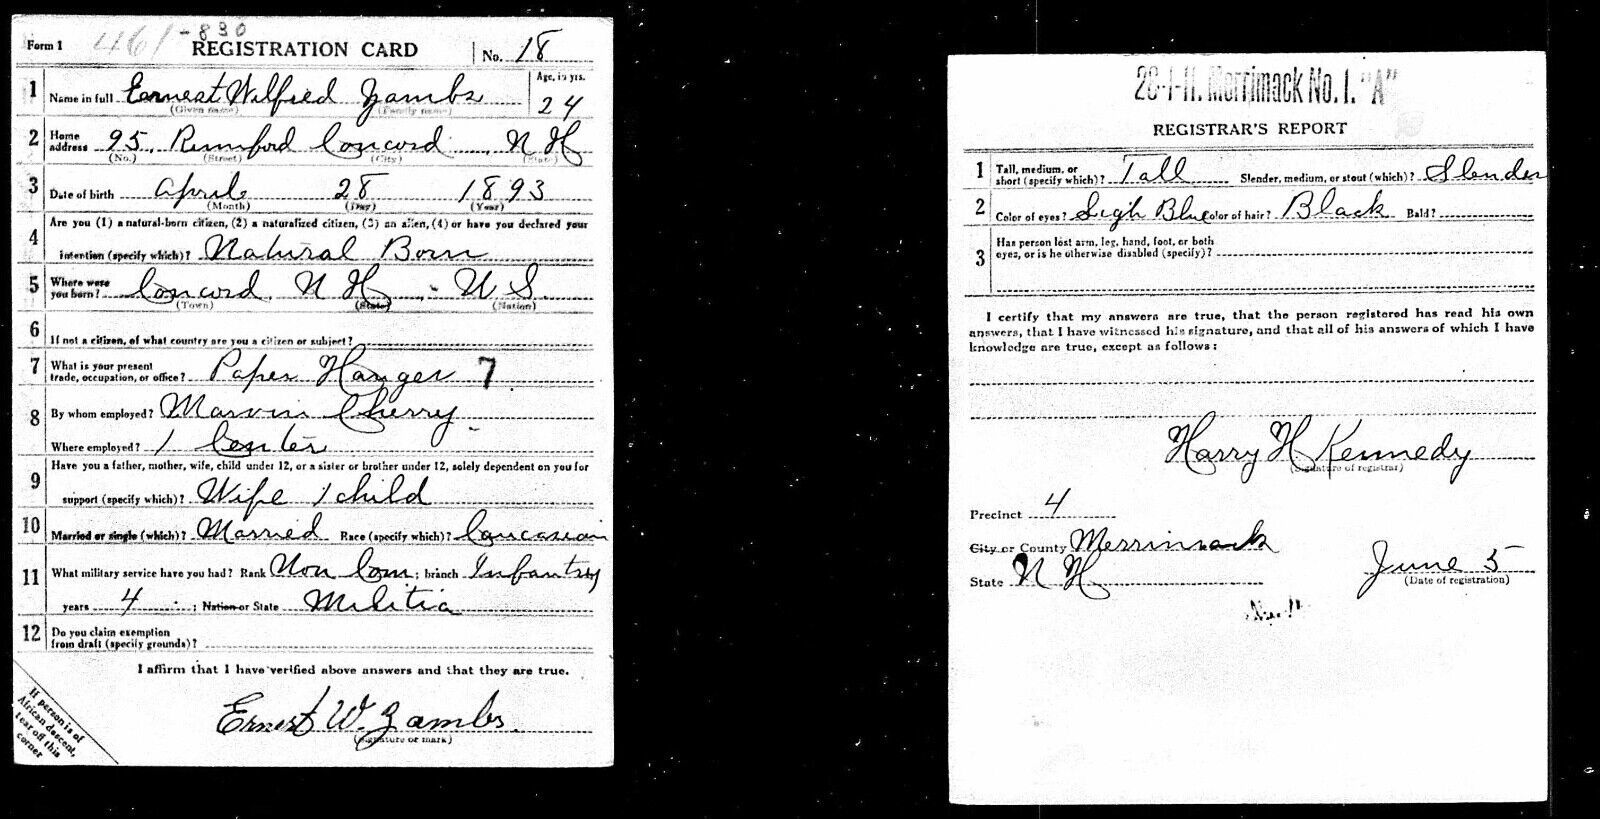 461-830
Form 1 REGISTRATION CARD No. 18
1 Name in full Ernest Wilfred Zambs Age, in yrs. 24
(Given name) (Family name)
2 Home address 95 Rumford Concord N H
(No.) (Street) (City) (State)
3 Date of birth April 28 1893
(Month) (Day) (Year)
4 Are you (1) a natural-born citizen, (2) a naturalized citizen, (3) an alien, (4) or have you declared your
intention (specify which)? Natural Born
5 Where were you born? Concord N H - U S.
(Town) (State) (Nation)
6 If not a citizen, of what country are you a citizen or subject?
7 What is your present trade, occupation, or office? Paper Hanger 7
8 By whom employed? Marvin Cherry
Where employed? 1 Center
9 Have you a father, mother, wife, child under 12, or a sister or brother under 12, solely dependent on you for
support (specify which)? Wife 1 child
10 Married or single (which)? Married Race (specify which)? Caucasian
11 What military service have you had? Rank Non Com; branch Infantry
years 4; Nation or State Militia
12 Do you claim exemption
from draft (specify grounds)?
I affirm that I have verified above answers and that they are true.
Ernest W. Zambs.
(Signature or mark)
If person is of
African descent,
tear off this
corner
28-1-11. Merrimack No. 1. "A"
REGISTRAR'S REPORT
1 Tall, medium, or short (specify which)? Tall Slender, medium, or stout (which)? Slender
2 Color of eyes? Ligh Blue Color of hair? Black Bald?
3 Has person lost arm, leg, hand, foot, or both
eyes, or is he otherwise disabled (specify)?
I certify that my answers are true, that the person registered has read his own
answers, that I have witnessed his signature, and that all of his answers of which I have
knowledge are true, except as follows:
Harry H Kennedy
(Signature of registrar)
Precinct 4
City or County Merrimack
State N H June 5
(Date of registration)